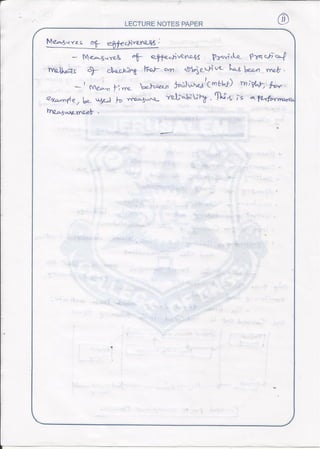 LECTURE NOTES PAPER
11
Measures of effectiveness:
- Measures of effectiveness provide practical
methods of checking that an objective has been met.
- 'Mean time between failures' (mtbf) might, for
example, be used to measure reliability. This is a performance
measurement.
JERUSALEM
COLLEGE OF